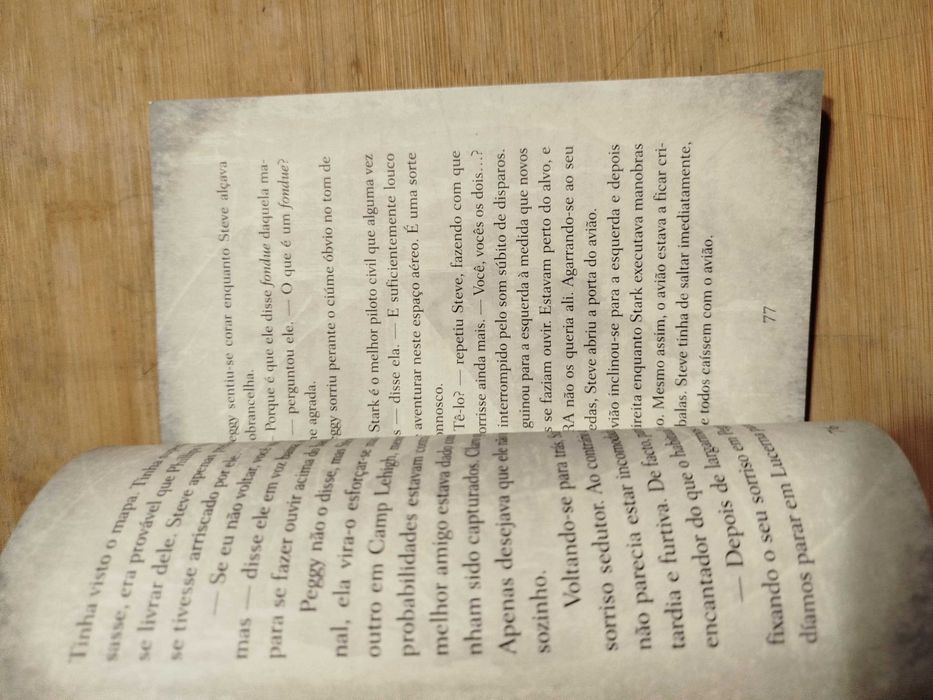 Tinha visto o mapa. Tinha
sasse, era provável que Philip
se livrar dele. Steve apenas
se tivesse arriscado por ele.
— Se eu não voltar,
mas — disse ele em voz
para se fazer ouvir acima
Peggy não o disse, mas
nal, ela vira-o esforçar-se
outro em Camp Lehigh,
probabilidades estavam
melhor amigo estava
nham sido capturados.
Apenas desejava que ele não
sozinho.
Voltando-se para trás,
sorriso sedutor. Ao contrário
não parecia estar
tardia e furtiva. De facto,
encantador do que o
— Depois de largarmos
fixando o seu sorriso em
díamos parar em Lucerna
76
Peggy sentiu-se corar enquanto Steve alçava
sobrancelha.
— Porque é que ele disse fondue daquela ma-
— perguntou ele. — O que é um fondue?
me agrada.
Peggy sorriu perante o ciúme óbvio no tom de
Stark é o melhor piloto civil que alguma vez
— disse ela. — E suficientemente louco
aventurar neste espaço aéreo. É uma sorte
connosco.
Tê-lo? — repetiu Steve, fazendo com que
sorrisse ainda mais. — Você, vocês os dois…?
interrompido pelo som súbito de disparos.
guinou para a esquerda à medida que novos
se faziam ouvir. Estavam perto do alvo, e
não os queria ali. Agarrando-se ao seu
Steve abriu a porta do avião.
avião inclinou-se para a esquerda e depois
direita enquanto Stark executava manobras
Mesmo assim, o avião estava a ficar cri-
balas. Steve tinha de saltar imediatamente,
e todos caíssem com o avião.
77